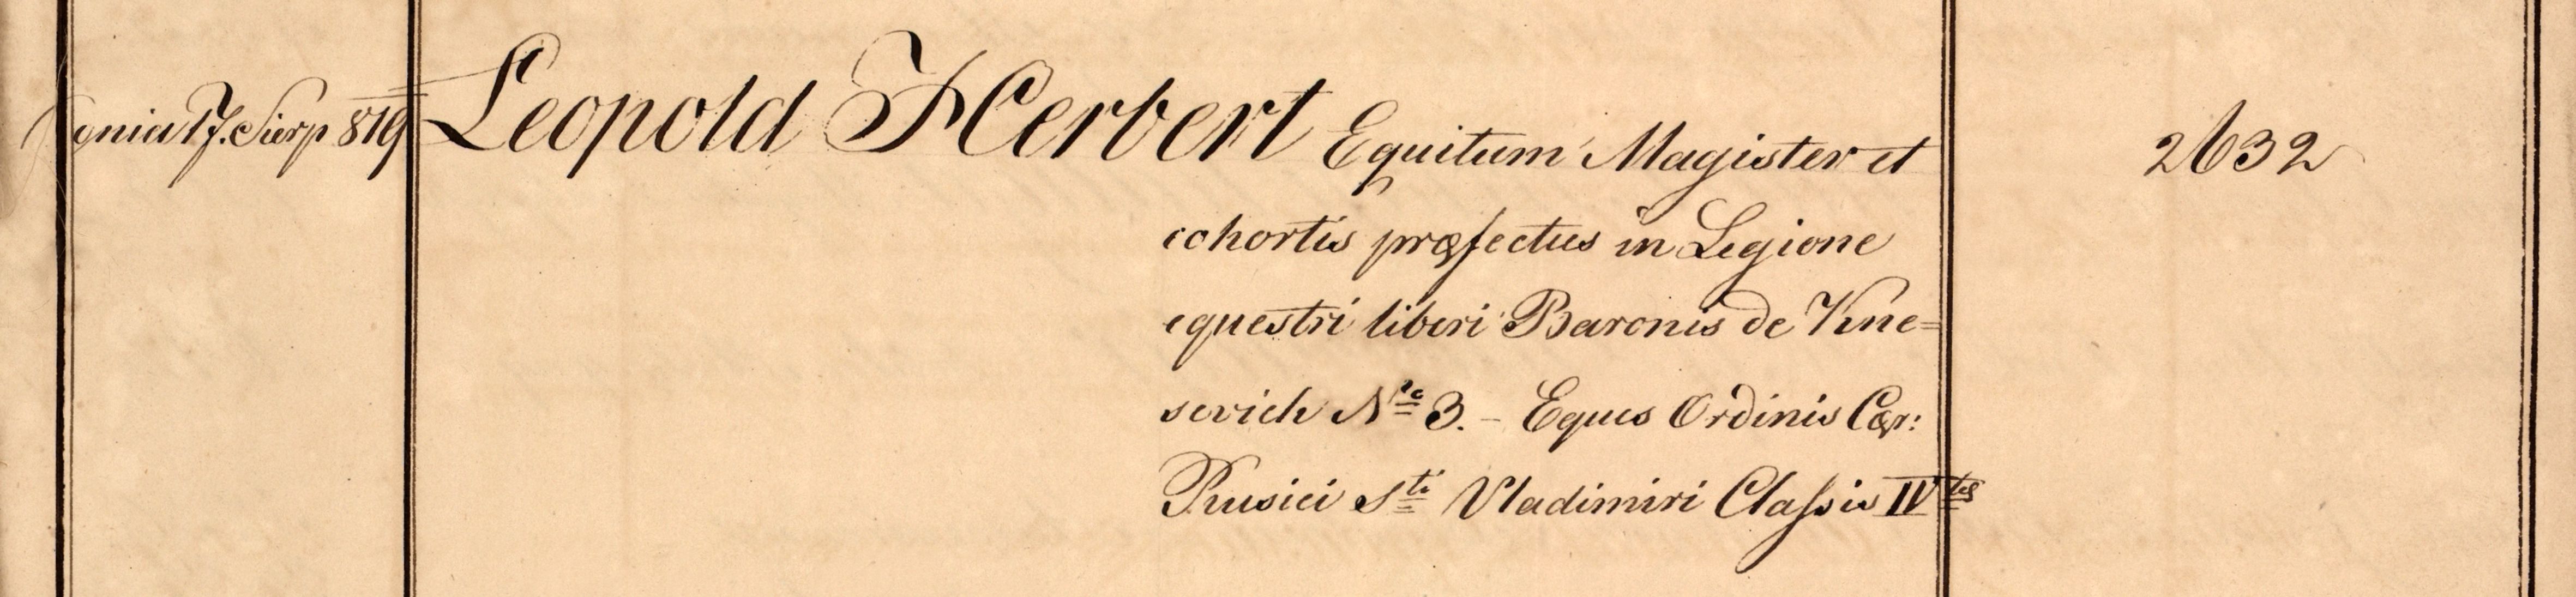 dnia 17. Sierp 819
Leopold Herbert Equitum Magister et
cohortis præfectus in Legione
equestri liberi Baronis de Kne=
sevich Nro 3. - Eques Ordinis Cæs:
Rusici Sti Vladimiri Classis IVtæ
2632